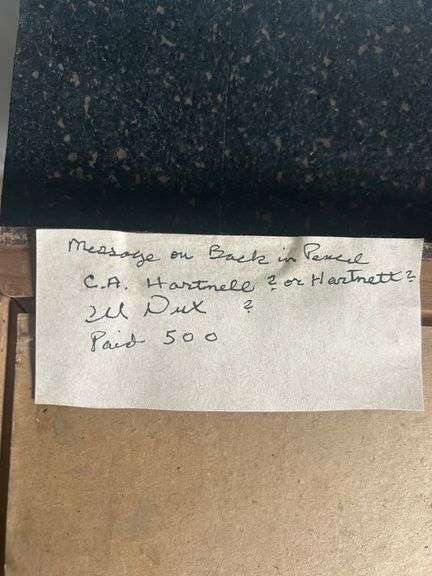 Message on Back in Pencil
C.A. Hartnell ? or Hartnett ?
Dux ?
Paid 500